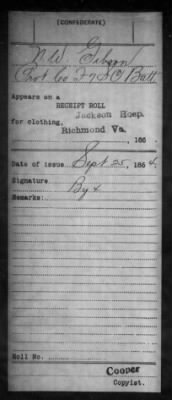 (CONFEDERATE)
N W Gibson
Pvt Co F 7 S C Batt
Appears on a
RECEIPT ROLL
for clothing, Jackson Hosp.
Richmond Va. , 186 .
Date of issue Sept 25, 1864.
Signature
By x
Remarks:
Roll No.
Cooper
Copyist.